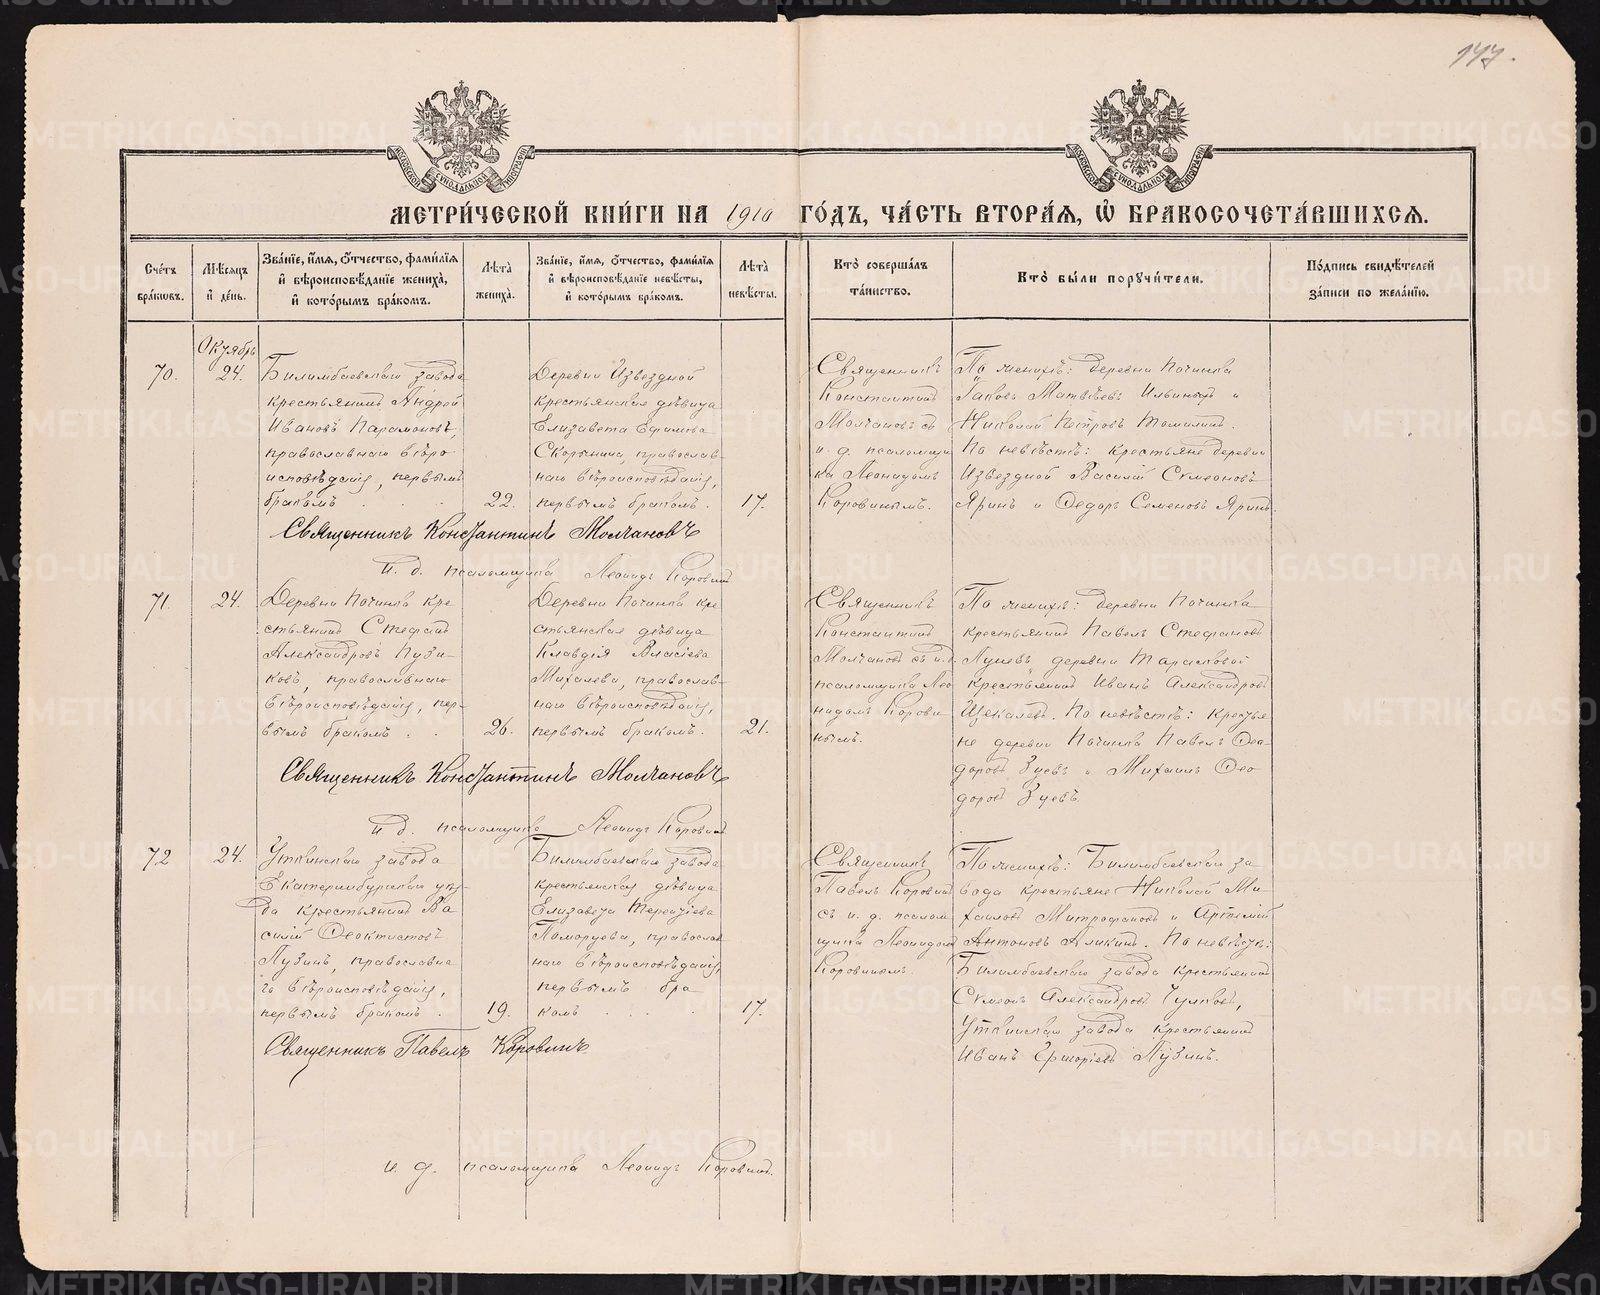 177.
МОСКОВСКОЙ СѴНОДАЛЬНОЙ ТИПОГРАФІИ
МОСКОВСКОЙ СѴНОДАЛЬНОЙ ТИПОГРАФІИ
МЕТРИЧЕСКОЙ КНИГИ НА 1910 ГОДЪ, ЧАСТЬ ВТОРАЯ, Ѡ БРАКОСОЧЕТАВШИХСЯ.
Счетъ браковъ.
Мѣсяцъ и день.
Званіе, имя, отчество, фамилія
и вѣроисповѣданіе жениха,
и которымъ бракомъ.
Лѣта жениха.
Званіе, имя, отчество, фамилія
и вѣроисповѣданіе невѣсты,
и которымъ бракомъ.
Лѣта невѣсты.
Кто совершалъ
таинство.
Кто были поручители.
Подпись свидѣтелей
записи по желанію.
Октябрь
70.
24.
Билимбаевскаго завода
крестьянинъ Андрей
Ивановъ Парамоновъ,
православнаго вѣро
исповѣданія, первымъ
бракомъ . . .
22.
Деревни Извездной
крестьянская дѣвица
Елизавета Ефимова
Скорынина, православ
наго вѣроисповѣданія,
первымъ бракомъ.
17.
Священникъ
Константинъ
Молчановъ съ
и. д. псаломщи
ка Леонидомъ
Коровинымъ.
По женихѣ: деревни Починка
Іаковъ Матвѣевъ Ильиныхъ и
Николай Петровъ Томилинъ.
По невѣстѣ: крестьяне деревни
Извездной Василій Сѵмеоновъ
Яринъ и Ѳедоръ Семеновъ Яринъ.
Священникъ Константинъ Молчановъ
И. д. псаломщика Леонидъ Коровинъ
71.
24.
Деревни Починка кре
стьянинъ Стефанъ
Александровъ Пузи-
ковъ, православнаго
вѣроисповѣданія, пер-
вымъ бракомъ . .
26.
Деревни Починка кре
стьянская дѣвица
Клавдія Власіева
Михалева, православ-
наго вѣроисповѣданія,
первымъ бракомъ.
21.
Священникъ
Константинъ
Молчановъ съ и. д.
псаломщика Лео
нидомъ Корови
нымъ.
По женихѣ: деревни Починка
крестьянинъ Павелъ Стефановъ
деревни Тарасковой
крестьянинъ Иванъ Александровъ
Щекалевъ. По невѣстѣ: крестья
не деревни Починка Павелъ Ѳео
доровъ Зуевъ и Михаилъ Ѳео
доровъ Зуевъ.
Священникъ Константинъ Молчановъ
И д. псаломщика Леонидъ Коровинъ
72
24.
Уткинскаго завода
Екатеринбургскаго уѣз-
да крестьянинъ Ва
силій Ѳеоктистовъ
Пузинъ, православна
го вѣроисповѣданія,
первымъ бракомъ .
19.
Билимбаевскаго завода
крестьянская дѣвица
Елизавета Терентіева
Поморцева, православ
наго вѣроисповѣданія,
первымъ бра
комъ . . . .
17.
Священникъ
Павелъ Коровинъ
съ и. д. псалом
щика Леонидомъ
Коровинымъ.
По женихѣ: Билимбаевскаго за
вода крестьяне Николай Ми
хаиловъ Митрофановъ и Артемій
Антоновъ Аликинъ. По невѣстѣ:
Билимбаевскаго завода крестьянинъ
Сѵмеонъ Александровъ Чулковъ,
Уткинскаго завода крестьянинъ
Иванъ Григоріевъ Пузинъ.
Священникъ Павелъ Коровинъ
и. д. псаломщика Леонидъ Коровинъ.
METRIKI.GASO-URAL.RU